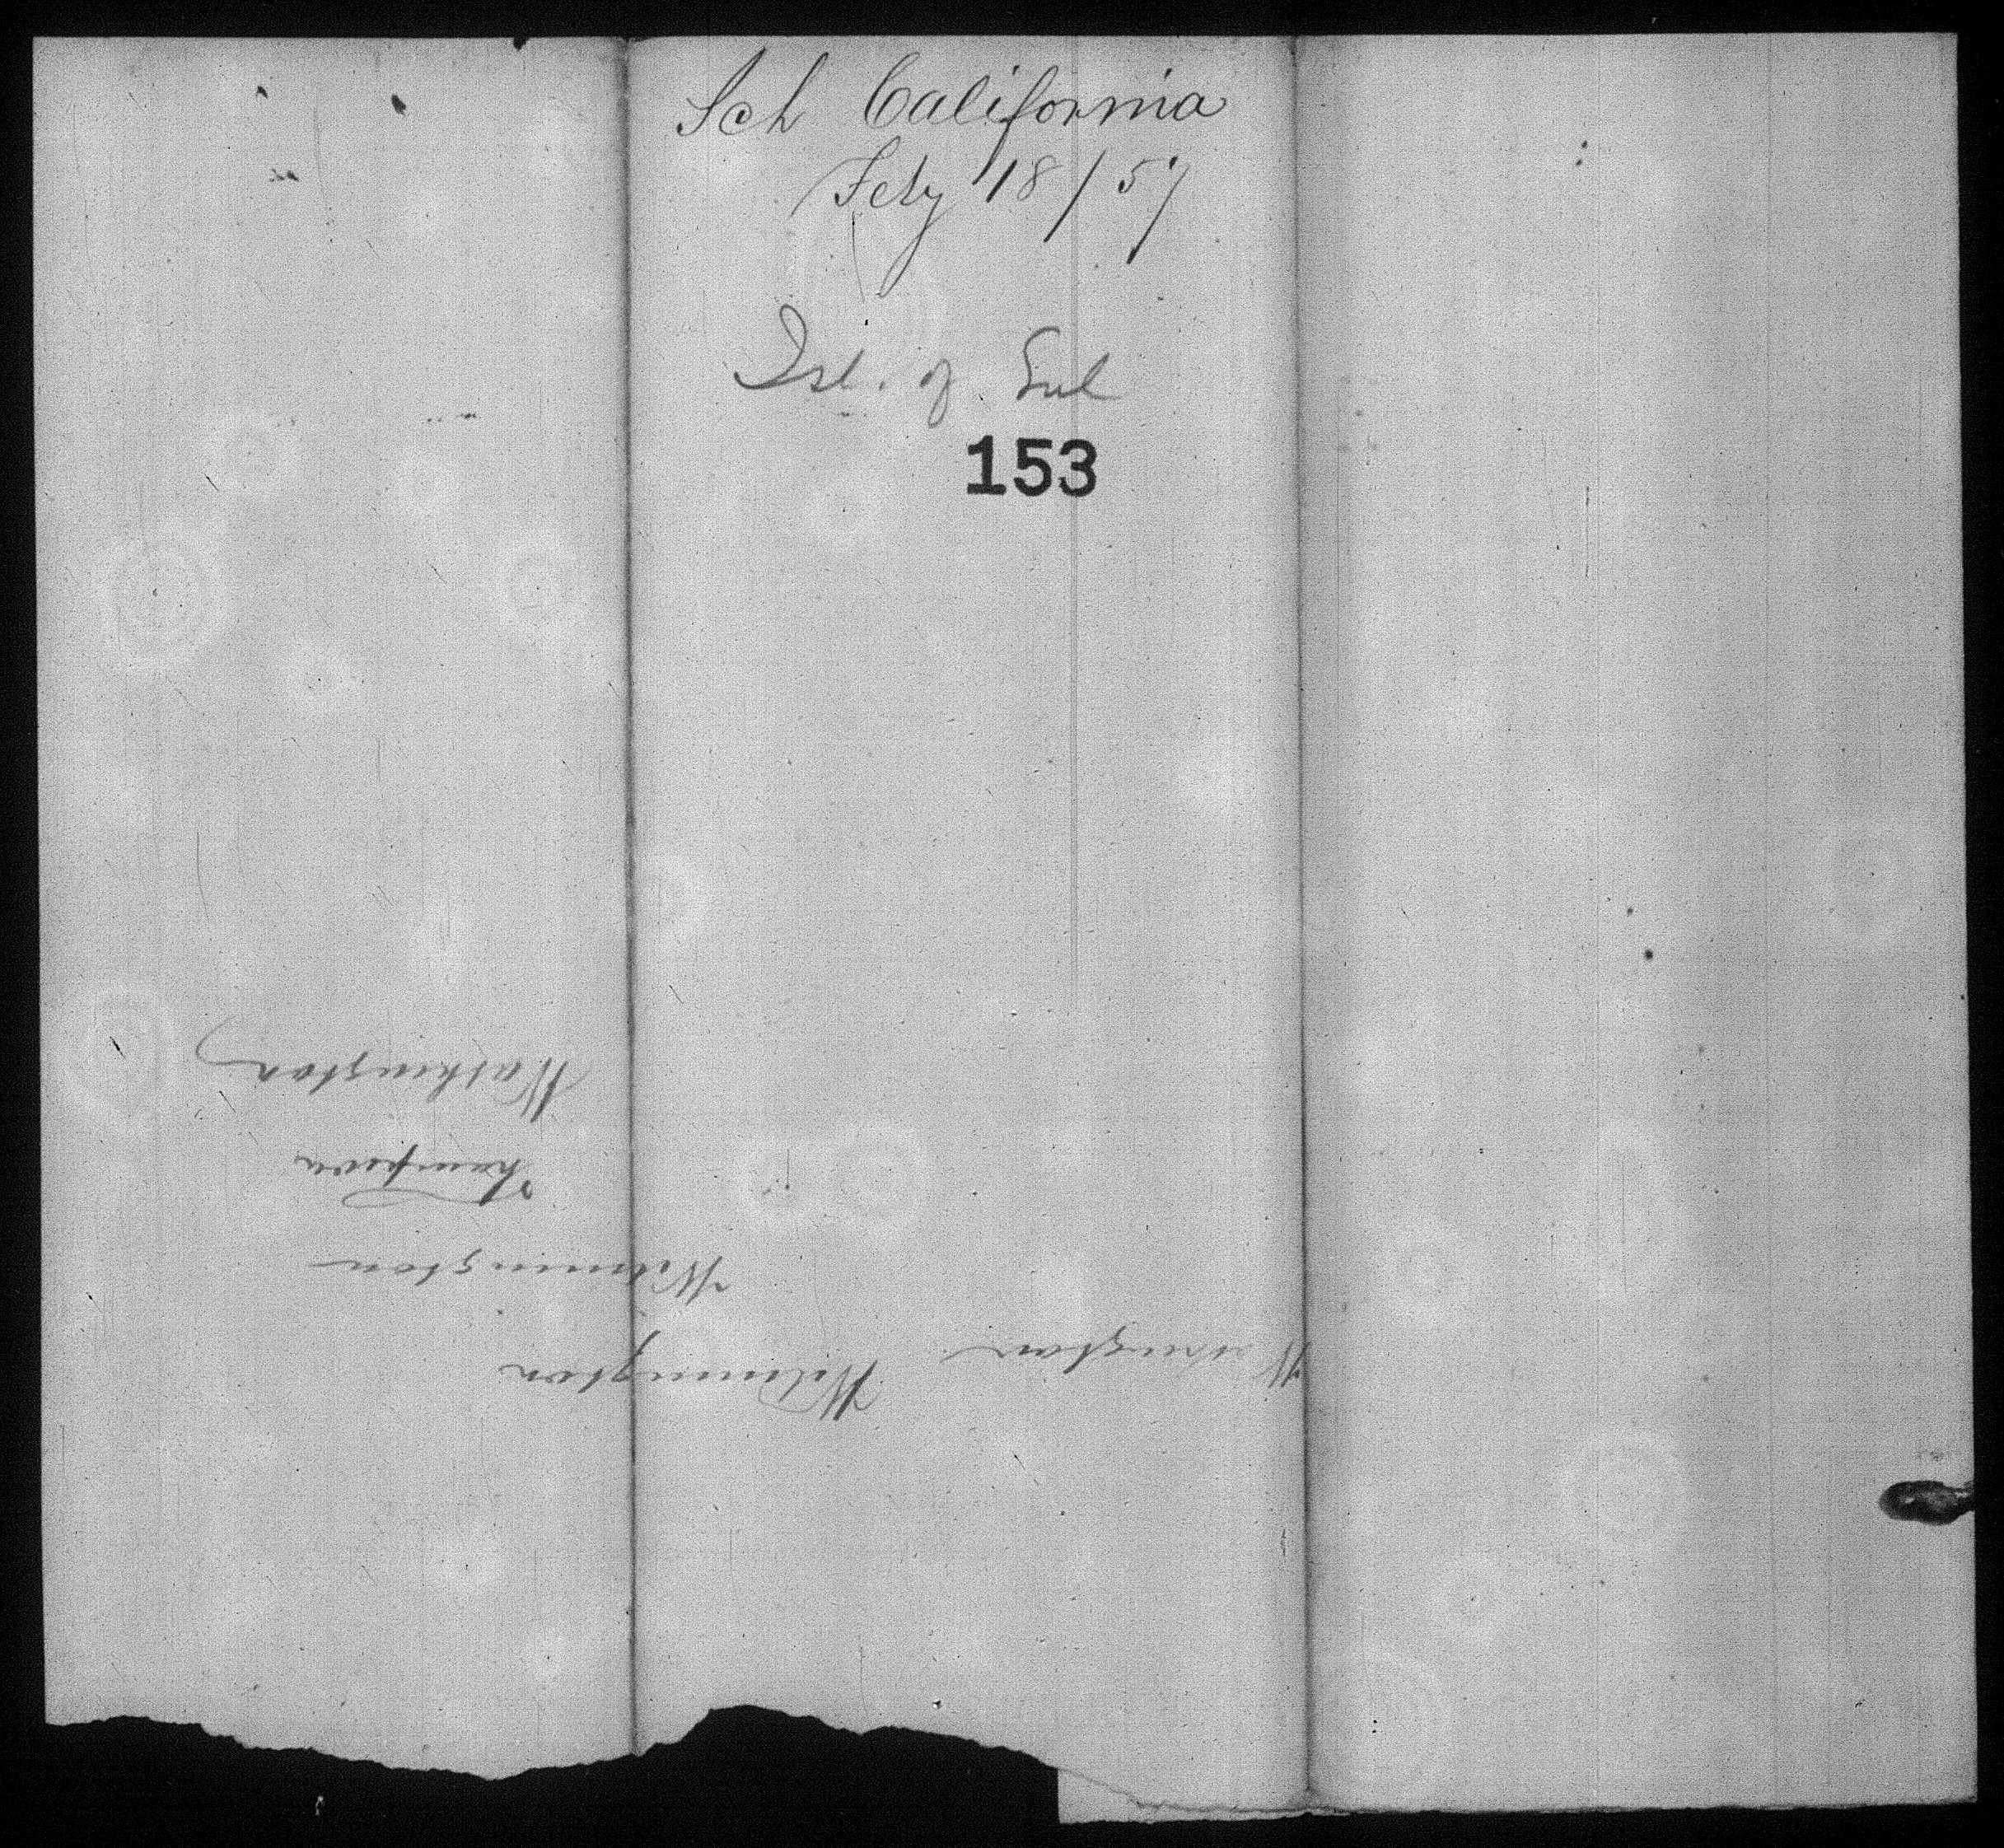 Sch California
Feby 18/57
Isl. of Eul
153
Washington
Thompson
Wilmington
Wilmington
Washington